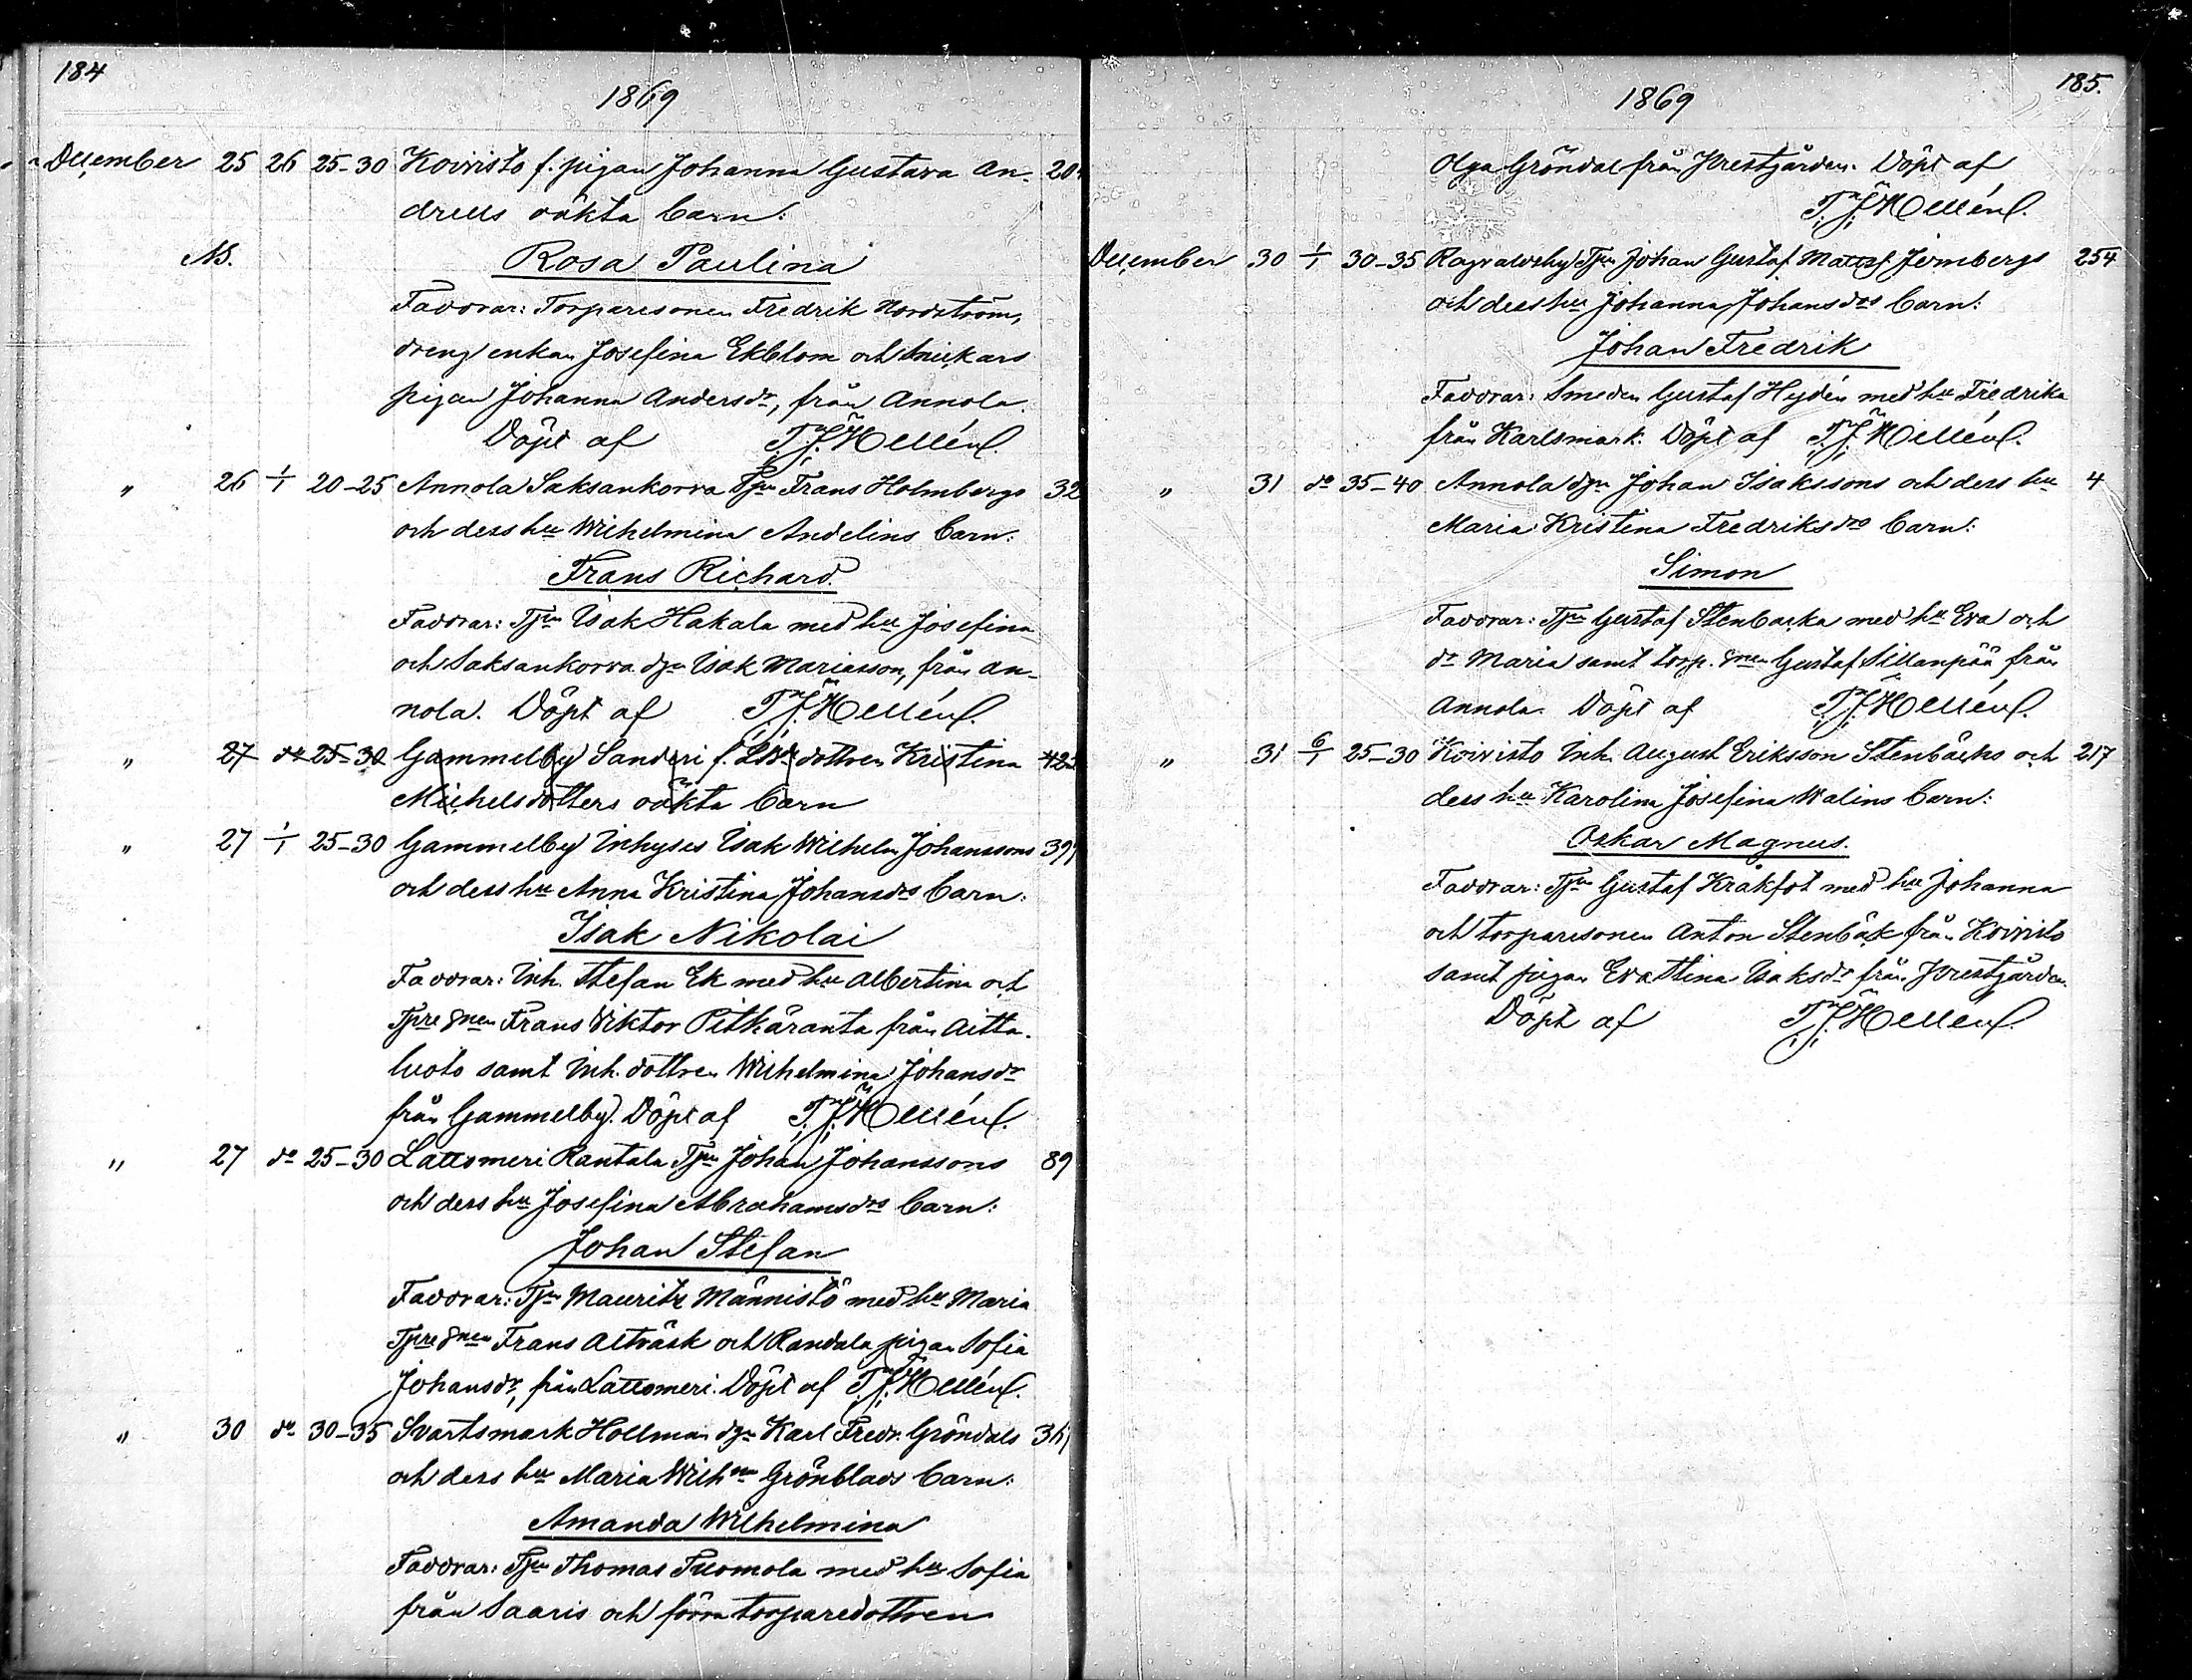 184
1869
December 25 26 25-30 Koivisto f. pigan Johanna Gustava An- 20
drells oäkta barn:
NB. Rosa Paulina
Faddrar: Torparesonen Fredrik Nordström,
drengenkan Josefina Ekblom och Snickars
pigan Johanna Andersdr, från Annola
Döpt af T. J. Hellén.
" 26 1/1 20-25 Annola Saksankorva Tprn Frans Holmbergs 32
och dess hu Wilhelmina Andelins barn:
Frans Richard
Faddrar: Tprn Isak Hakala med hu Josefina
och Saksankorva dgn Isak Mariasson, från An-
nola. Döpt af T. J. Hellén.
" 27 do 25-30 Gammelby Sanderi f. dottren Kristina 42
Michelsdotters oäkta barn
" 27 1/1 25-30 Gammelby Inhyses Isak Wilhelm Johanssons 391
och dess hu Anna Kristina Johansdrs barn:
Isak Nikolai
Faddrar: Inh. Stefan Ek med hu Albertina och
Tpresnen Frans Viktor Pitkäranta från Aitta-
luoto samt Inh. dottren Wilhelmina Johansdr
från Gammelby. Döpt af T. J. Hellén.
" 27 do 25-30 Lattomeri Rantala Tprn Johan Johanssons 89
och dess hu Josefina Abrahamsdrs barn:
Johan Stefan
Faddrar: Tprn Mauritz Männistö med hu Maria
Tpresnen Frans Alträsk och Randala pigan Sofia
Johansdr, från Lattomeri. Döpt af T. J. Hellén.
" 30 do 30-35 Svartsmark Hollman dgn Karl Fredr. Gröndals 361
och dess hu Maria Wilhna Grönblads barn:
Amanda Wilhelmina
Faddrar: Tprn Thomas Tuomola med hu Sofia
från Saaris och förra torparedottren
185.
1869
Olga Gröndal från Prestgården. Döpt af
T. J. Hellén.
December 30 1/1 30-35 Ragvaldsby Tprn Johan Gustaf Mattsf Jernbergs 254
och dess hu Johanna Johansdrs barn:
Johan Fredrik
Faddrar: Smeden Gustaf Hydén med hu Fredrika
från Karlsmark. Döpt af T. J. Hellén.
" 31 do 35-40 Annola dgn Johan Isakssons och dess hu 4
Maria Kristina Fredriksdrs barn:
Simon
Faddrar: Tprn Gustaf Stenbacka med hu Eva och
dr Maria samt torp. snen Gustaf Sillanpää från
Annola. Döpt af T. J. Hellén.
" 31 6/1 25-30 Koivisto Inh. August Eriksson Stenbäcks och 217
dess hu Karolina Josefina Walins barn:
Oskar Magnus.
Faddrar: Tprn Gustaf Kråkfot med hu Johanna
och torparesonen Anton Stenbäck från Koivisto
samt pigan Eva Stina Isaksdr från Prestgården.
Döpt af T. J. Hellén.